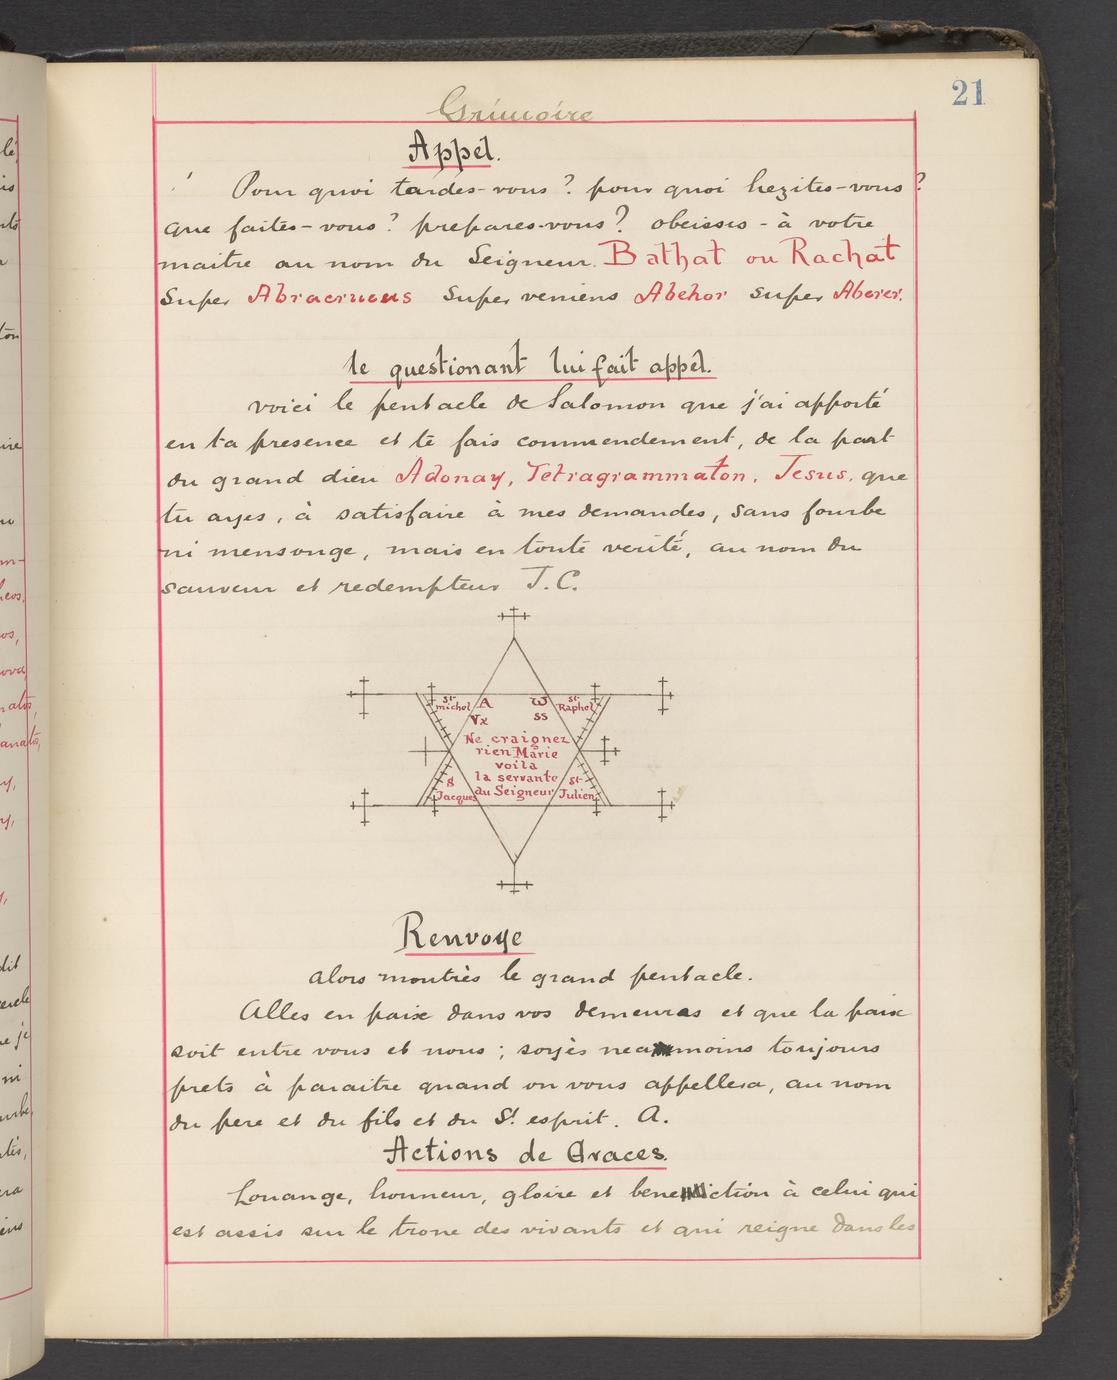 21
Grimoire
Appel.
Pour quoi tardes-vous? pour quoi hezites-vous?
que faites-vous? prepares-vous? obeisses-à votre
maitre au nom du Seigneur. Bathat ou Rachat
Super Abracruens Super veniens Abehor super Aberer.
le questionant lui fait appel.
voici le pentacle de Salomon que j'ai apporté
en ta presence et te fais commendement, de la part
du grand dieu Adonay, Tetragrammaton. Jesus. que
tu ayes, à satisfaire à mes demandes, sans fourbe
ni mensonge, mais en toute verité, au nom du
sauveur et redempteur J.C.
st michel A ω st Raphel
Vx ss
Ne craignez
rien Marie
voila
la servante
du Seigneur
S Jacques st Julien
Renvoye
alors montrès le grand pentacle.
Alles en paix dans vos demeuras et que la paix
soit entre vous et nous; soyès neanmoins toujours
prets à paraitre quand on vous appellera, au nom
du pere et du fils et du St. esprit. A.
Actions de Graces.
Louange, honneur, gloire et benediction à celui qui
est assis sur le trone des vivants et qui reigne dans les